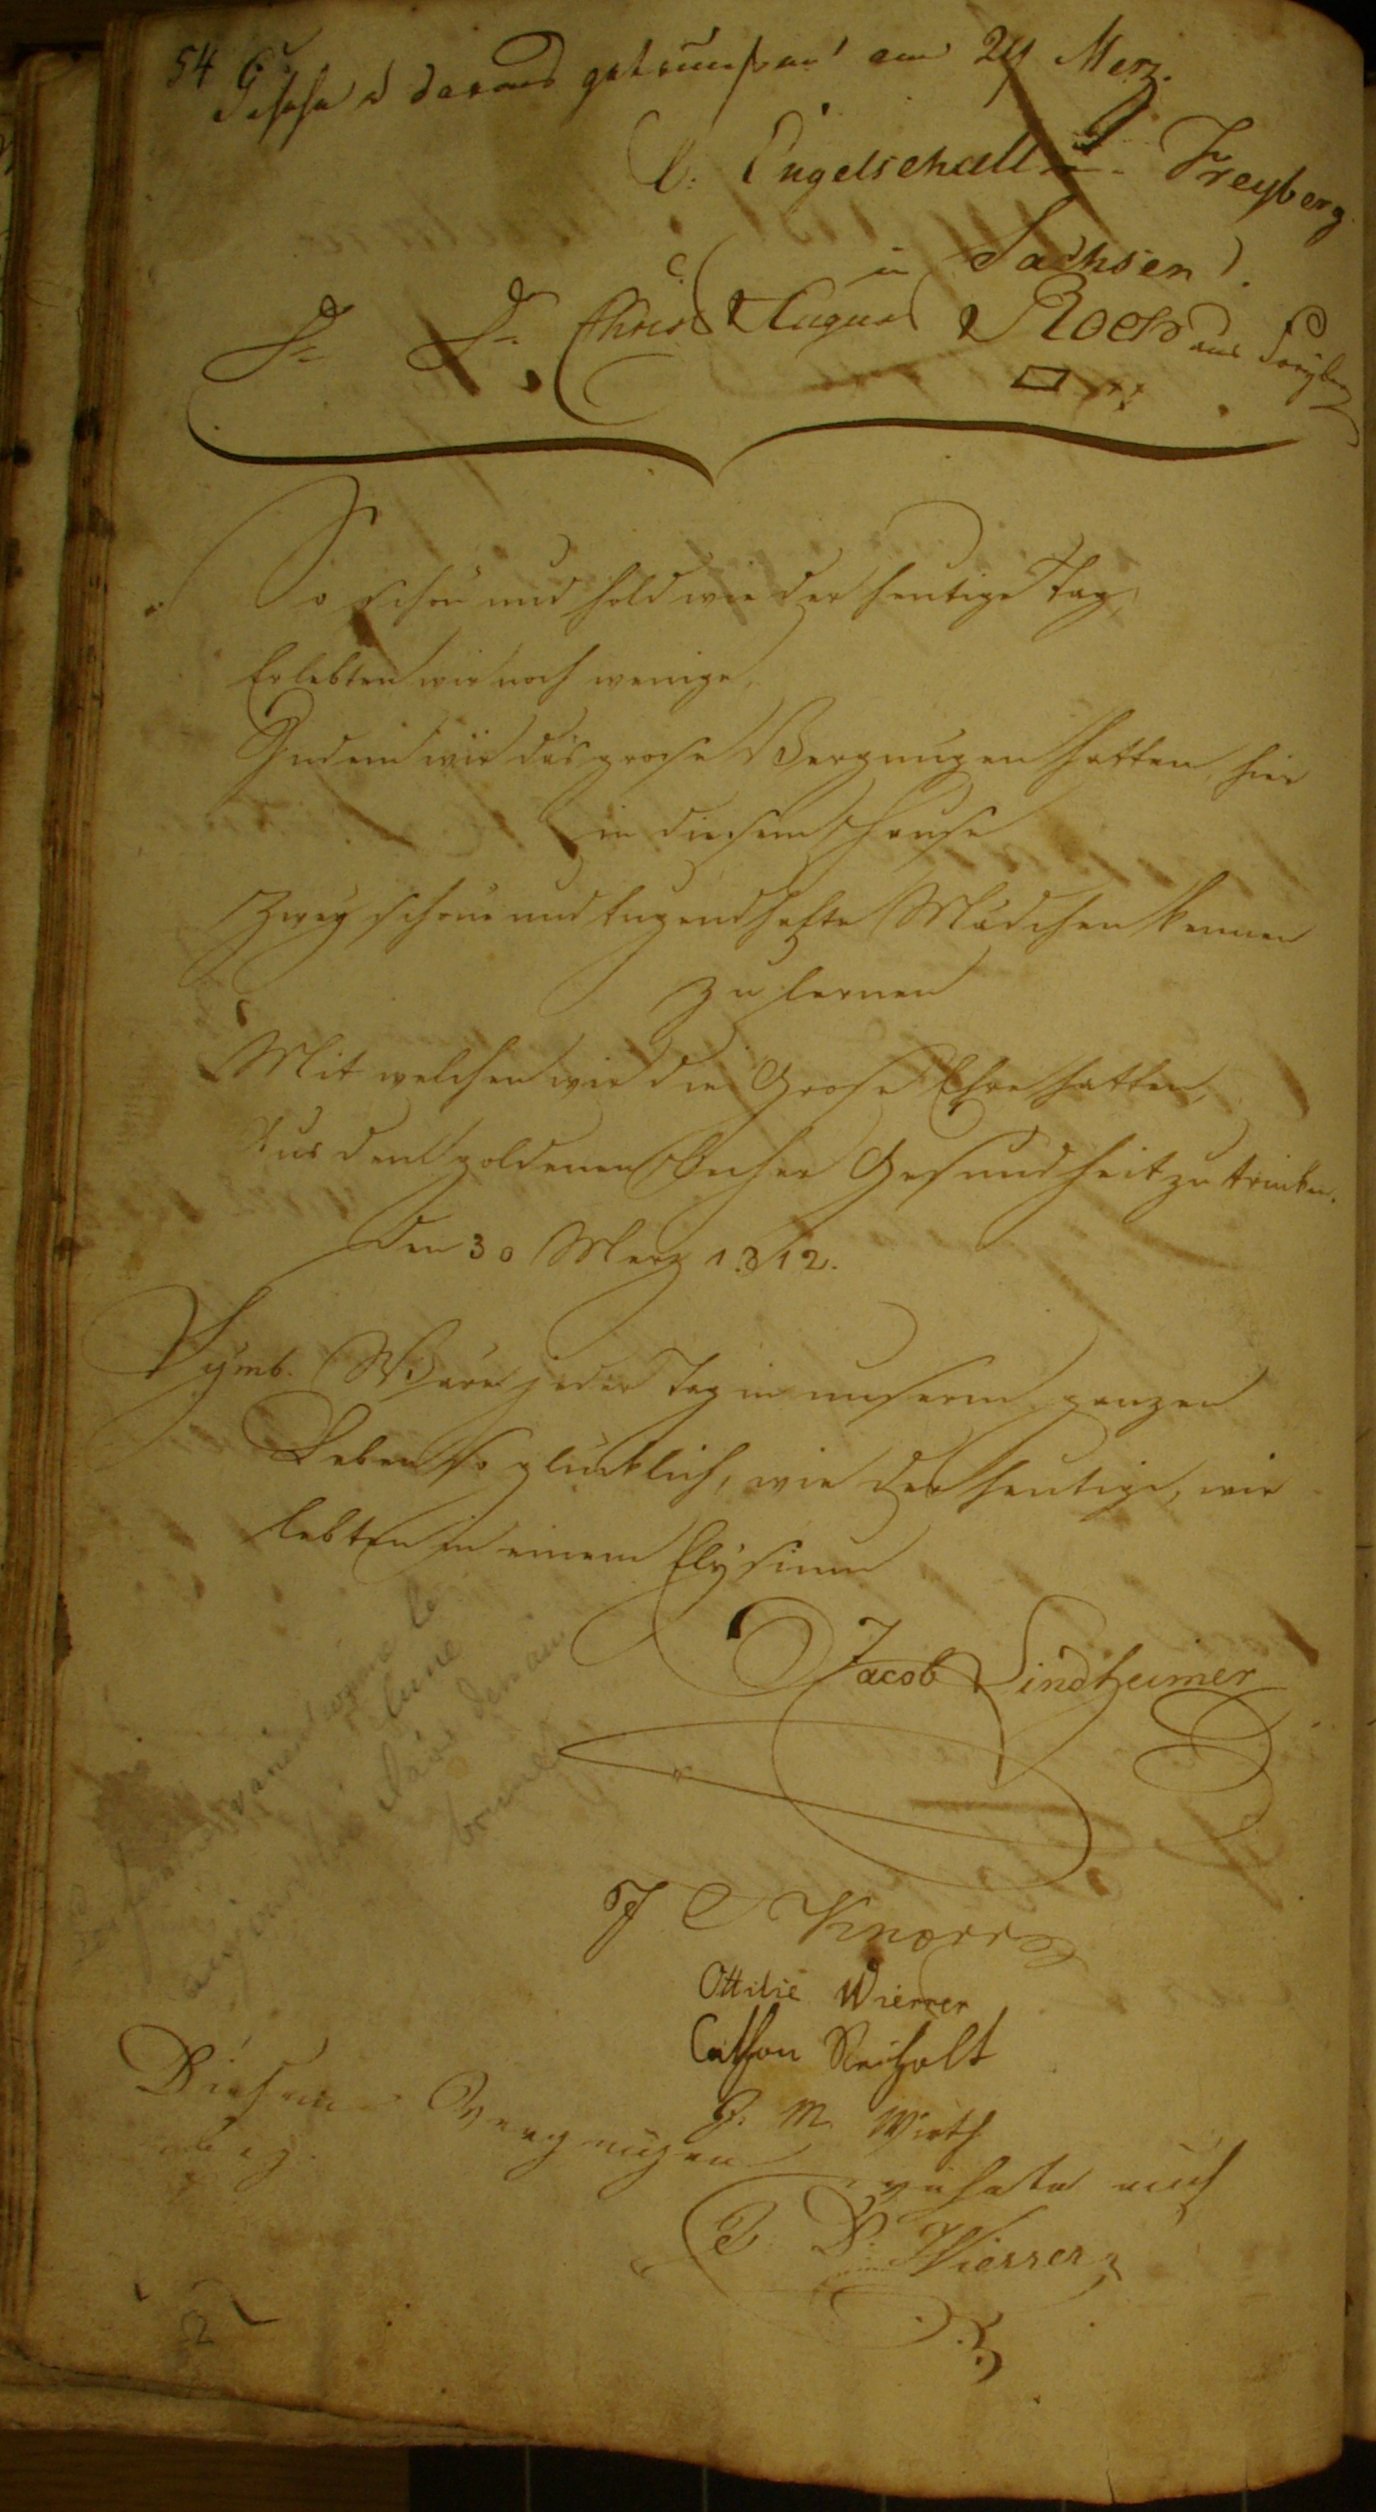 54
Gesehen & daraus getrunken! am 29 Merz.
C. Engelschall a. Freyberg
in Sachsen).
Christ August Koch aus Freyberg
So schön und hold wie der heutige Tag,
Erlebten wir noch wenige,
Indem wir das grose Vergnügen hatten, hier
in diesem Hause
Zwey schöne und tugendhafte Mädchen kennen
zu lernen
Mit welchen wir die Grose Ehre hatten,
Aus dem goldenen Becher Gesundheit zu trinken.
Den 30 Merz 1812.
Symb. Wäre jeder Tag in unserm ganzen
Leben so glücklich, wie der heutige, wir
lebten in einem Elysium
Jacob Sindheimer
J C Knorr
Ottilie Wierrer
Cathon Reiholt
J. M. Wirth
Diesem Vergnügen auch
Wierrer
2